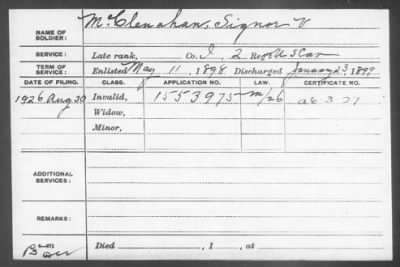 NAME OF SOLDIER: McClenahan, Signor V
SERVICE: Late rank, Co. I, 2 Reg't U S Cav
TERM OF SERVICE: Enlisted May 11, 1898 Discharged January 23, 1899
DATE OF FILING. CLASS. APPLICATION NO. LAW. CERTIFICATE NO.
1926 Aug 30 Invalid, 1553975 m/26 a6 3 71
Widow,
Minor,
ADDITIONAL SERVICES:
REMARKS:
Died , 1 , at